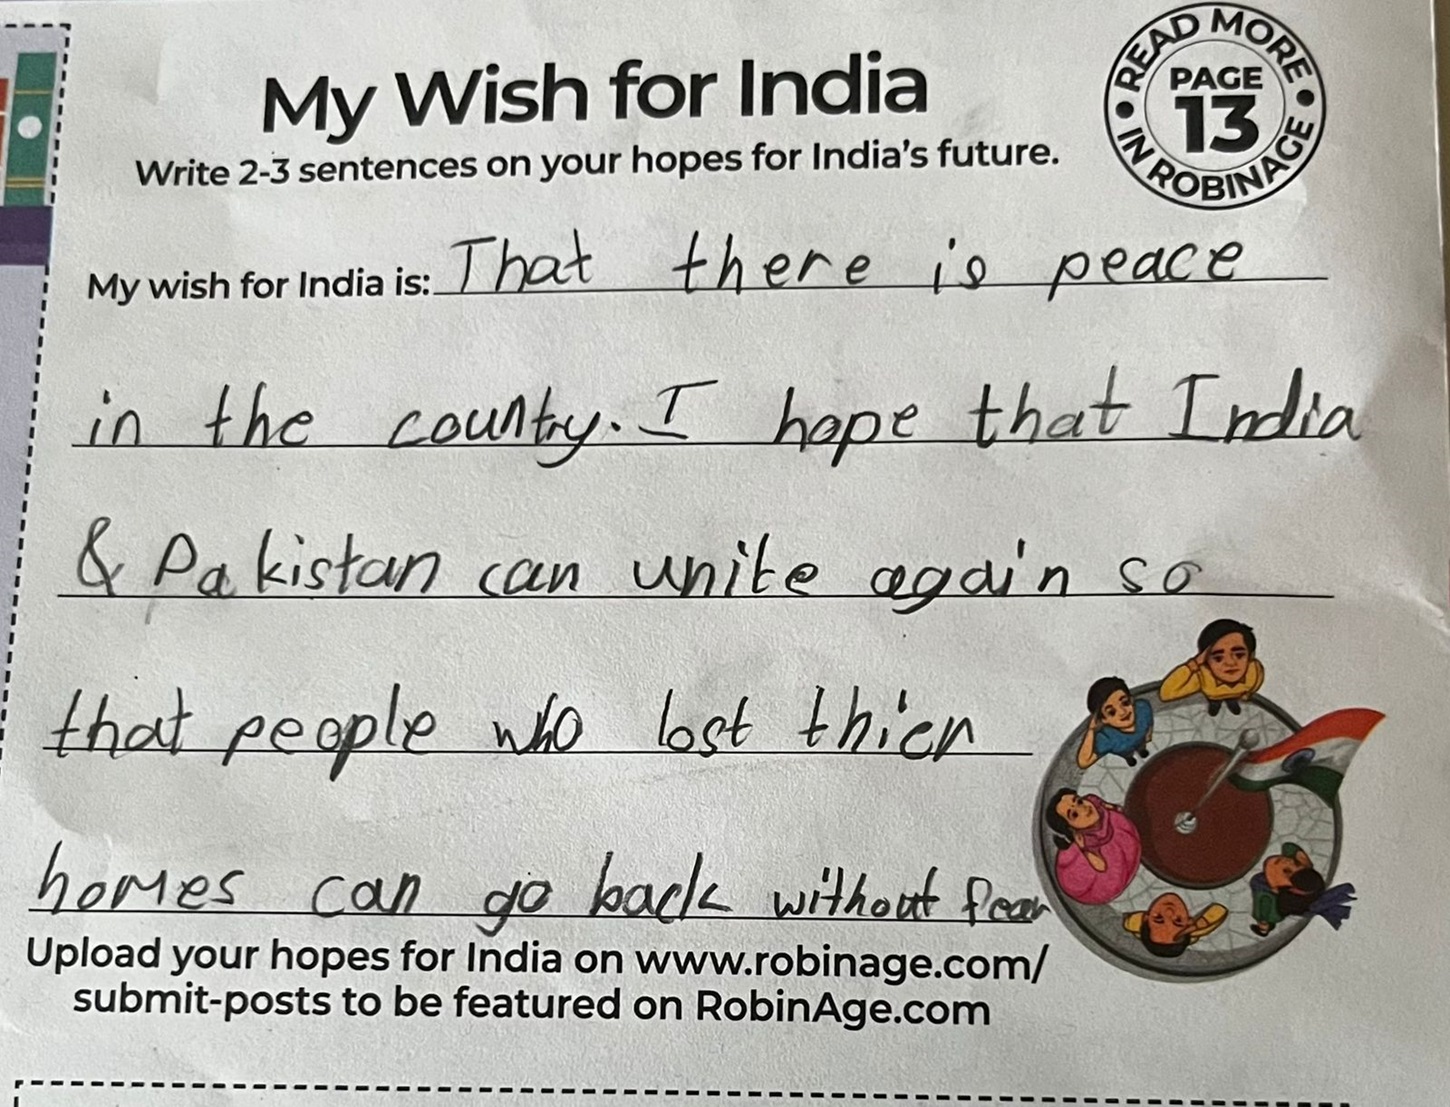 My Wish for India
READ MORE
PAGE
13
IN ROBINAGE
Write 2-3 sentences on your hopes for India's future.
My wish for India is: That there is peace
in the country. I hope that India
& Pakistan can unite again so
that people who lost thier
homes can go back without fear
Upload your hopes for India on www.robinage.com/
submit-posts to be featured on RobinAge.com